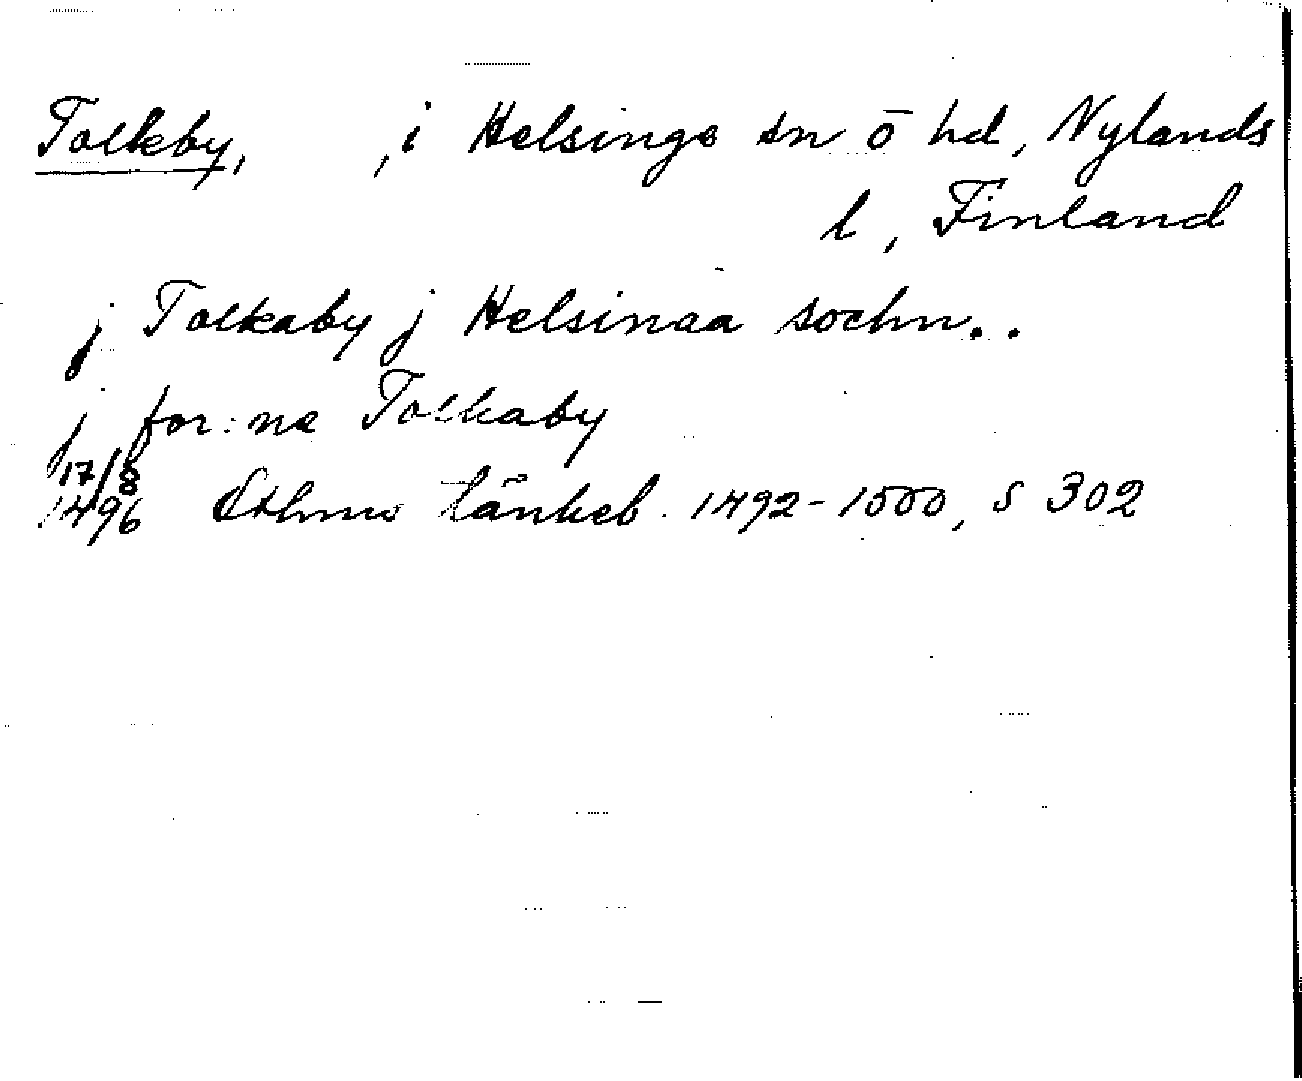 Tolkby, , i Helsinge sn o hd, Nylands
l, Finland
j Tolkaby j Helsinaa sochn..
j for:ne Tolkaby
17/8 1496 Sthms tänkeb. 1492-1500, s 302